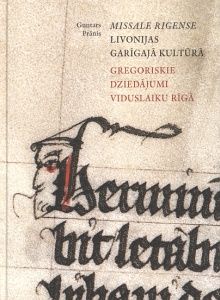 Guntars
Prānis
MISSALE RIGENSE
LIVONIJAS
GARĪGAJĀ KULTŪRĀ
GREGORISKIE
DZIEDĀJUMI
VIDUSLAIKU RĪGĀ
bit